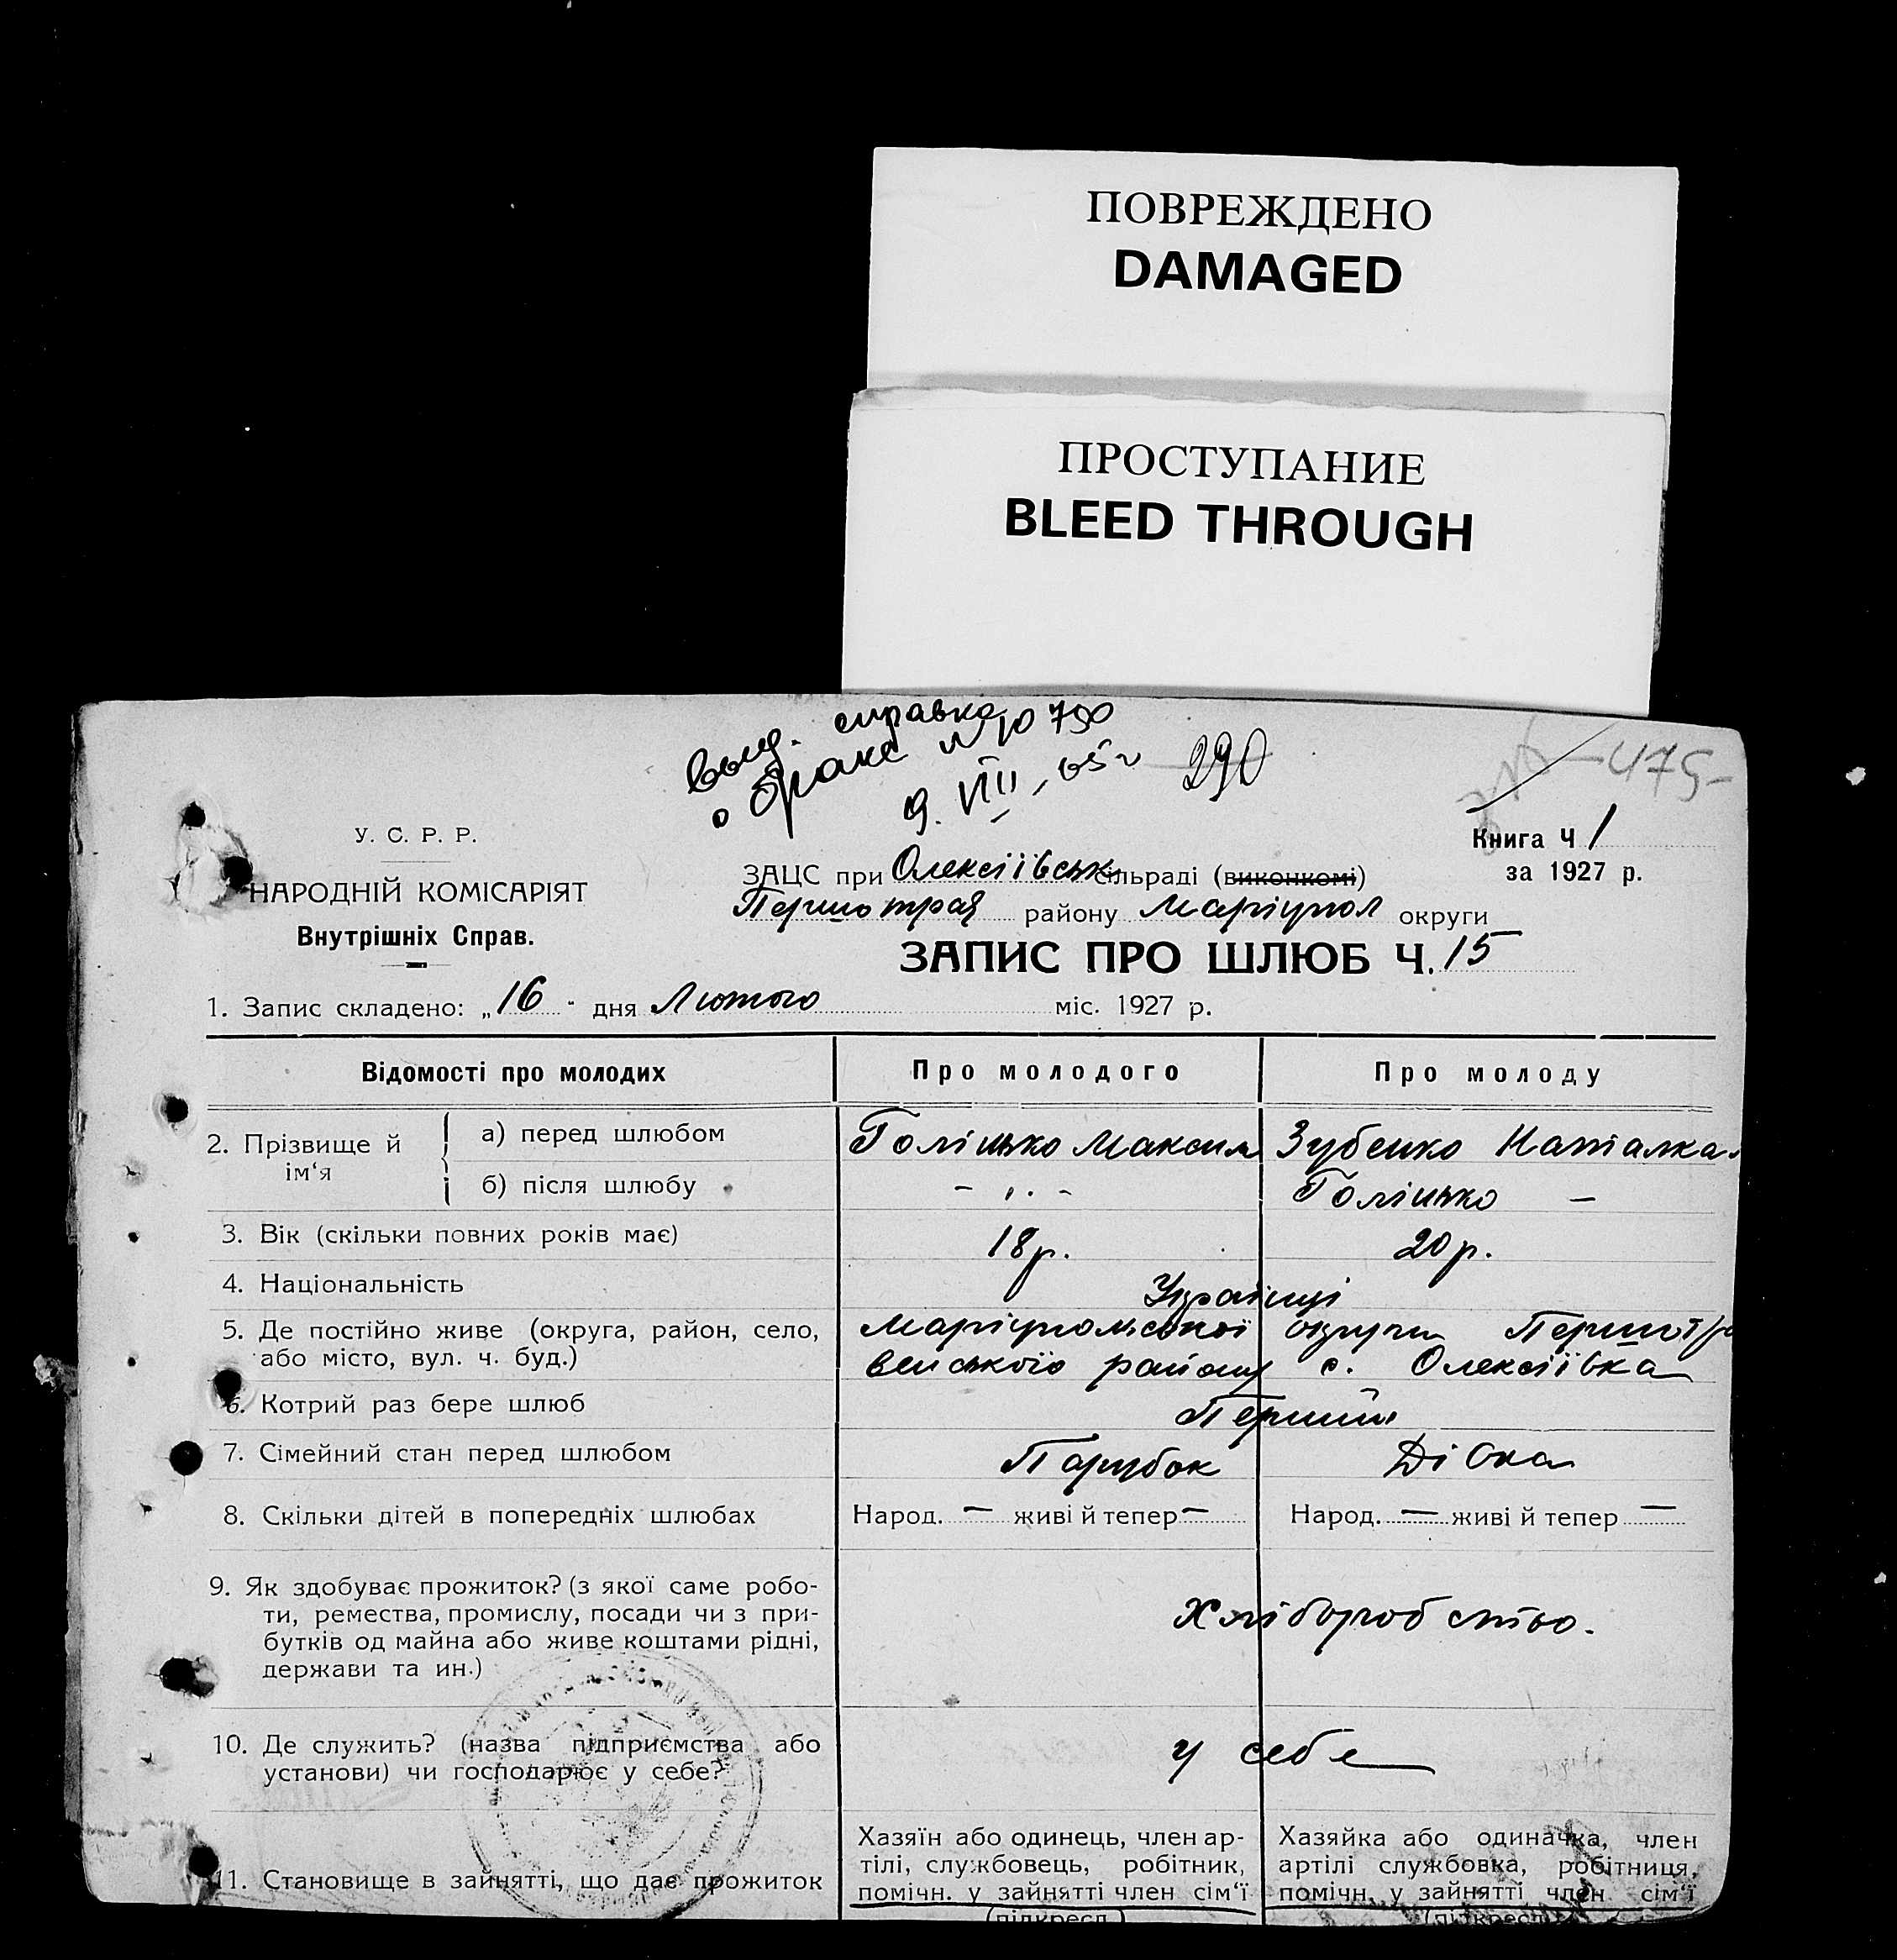 ПОВРЕЖДЕНО
DAMAGED
ПРОСТУПАНИЕ
BLEED THROUGH
выд. справка
о браке № 10790
9. VIII – 65 г
290
475
У. С. Р. Р.
НАРОДНІЙ КОМІСАРІЯТ
Внутрішніх Справ.
Книга Ч 1
за 1927 р.
ЗАЦС при Олексіївськ сільраді (виконкомі)
Першотрав району Маріупол округи
ЗАПИС ПРО ШЛЮБ Ч. 15
1. Запис складено: „16" дня Лютого міс. 1927 р.
Відомості про молодих
Про молодого
Про молоду
2. Прізвище й ім‘я
а) перед шлюбом
Голінько Максим
Зубенко Наталка
б) після шлюбу
- „ -
Голінько —
3. Вік (скільки повних років має)
18 р.
20 р.
4. Національність
Українці
5. Де постійно живе (округа, район, село,
або місто, вул. ч. буд.)
Маріупольської округи Першотра
венського району с. Олексіївка
6. Котрий раз бере шлюб
Перший
7. Сімейний стан перед шлюбом
Парубок
Дівка
8. Скільки дітей в попередніх шлюбах
Народ. — живі й тепер —
Народ. — живі й тепер —
9. Як здобуває прожиток? (з якої саме робо-
ти, ремества, промислу, посади чи з при-
бутків од майна або живе коштами рідні,
держави та ин.)
Хліборобство.
10. Де служить? (назва підприємства або
установи) чи господарює у себе?
у себе
11. Становище в зайнятті, що дає прожиток
Хазяїн або одинець, член ар-
тілі, службовець, робітник,
помічн. у зайнятті член сім‘ї
(підкресл.)
Хазяйка або одиначка, член
артілі службовка, робітниця,
помічн. у зайнятті член сім‘ї
(підкресл.)